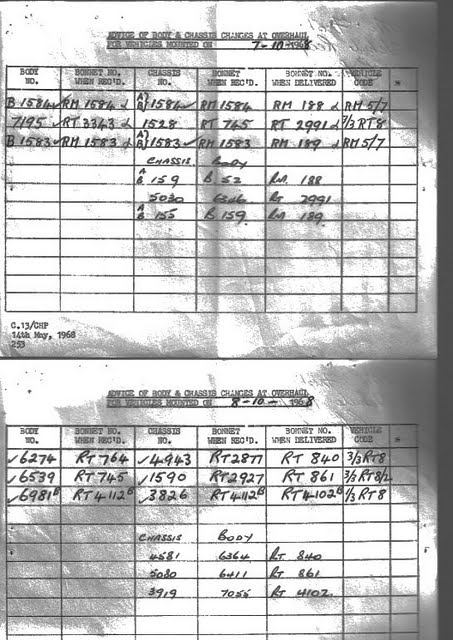 ADVICE OF BODY & CHASSIS CHANGES AT OVERHAUL
FOR VEHICLES MOUNTED ON 7-10-1968
BODY NO. BONNET NO. WHEN REC'D. CHASSIS NO. BONNET WHEN REC'D. BONNET NO. WHEN DELIVERED VEHICLE CODE *
B 1584 ✓ RM 1584 d A) B) 1584 ✓ RM 1584 RM 188 d RM 5/7
7195 ✓ RT 3343 d 1528 RT 745 RT 2991 d 7/3 RT8
B 1583 ✓ RM 1583 d A) B) 1583 ✓ RM 1583 RM 189 d RM 5/7
CHASSIS. BODY.
A B 159 B 52 RM 188
5030 6346 RT 2991
A B 155 B 159 RM 189
C.13/CHP
14th May, 1968
253
ADVICE OF BODY & CHASSIS CHANGES AT OVERHAUL
FOR VEHICLES MOUNTED ON 8-10-1968
BODY NO. BONNET NO. WHEN REC'D. CHASSIS NO. BONNET WHEN REC'D. BONNET NO. WHEN DELIVERED VEHICLE CODE *
✓6274 RT 764 ✓4943 RT2877 RT 840 3/3 RT8
✓6539 RT 745 ✓1590 RT2927 RT 861 3/3 RT8/2
✓6981B RT 4112B ✓3826 RT4112B RT4102B 1/3 RT8
CHASSIS BODY
4581 6364 RT 840
5080 6411 RT 861
3919 7055 RT 4102